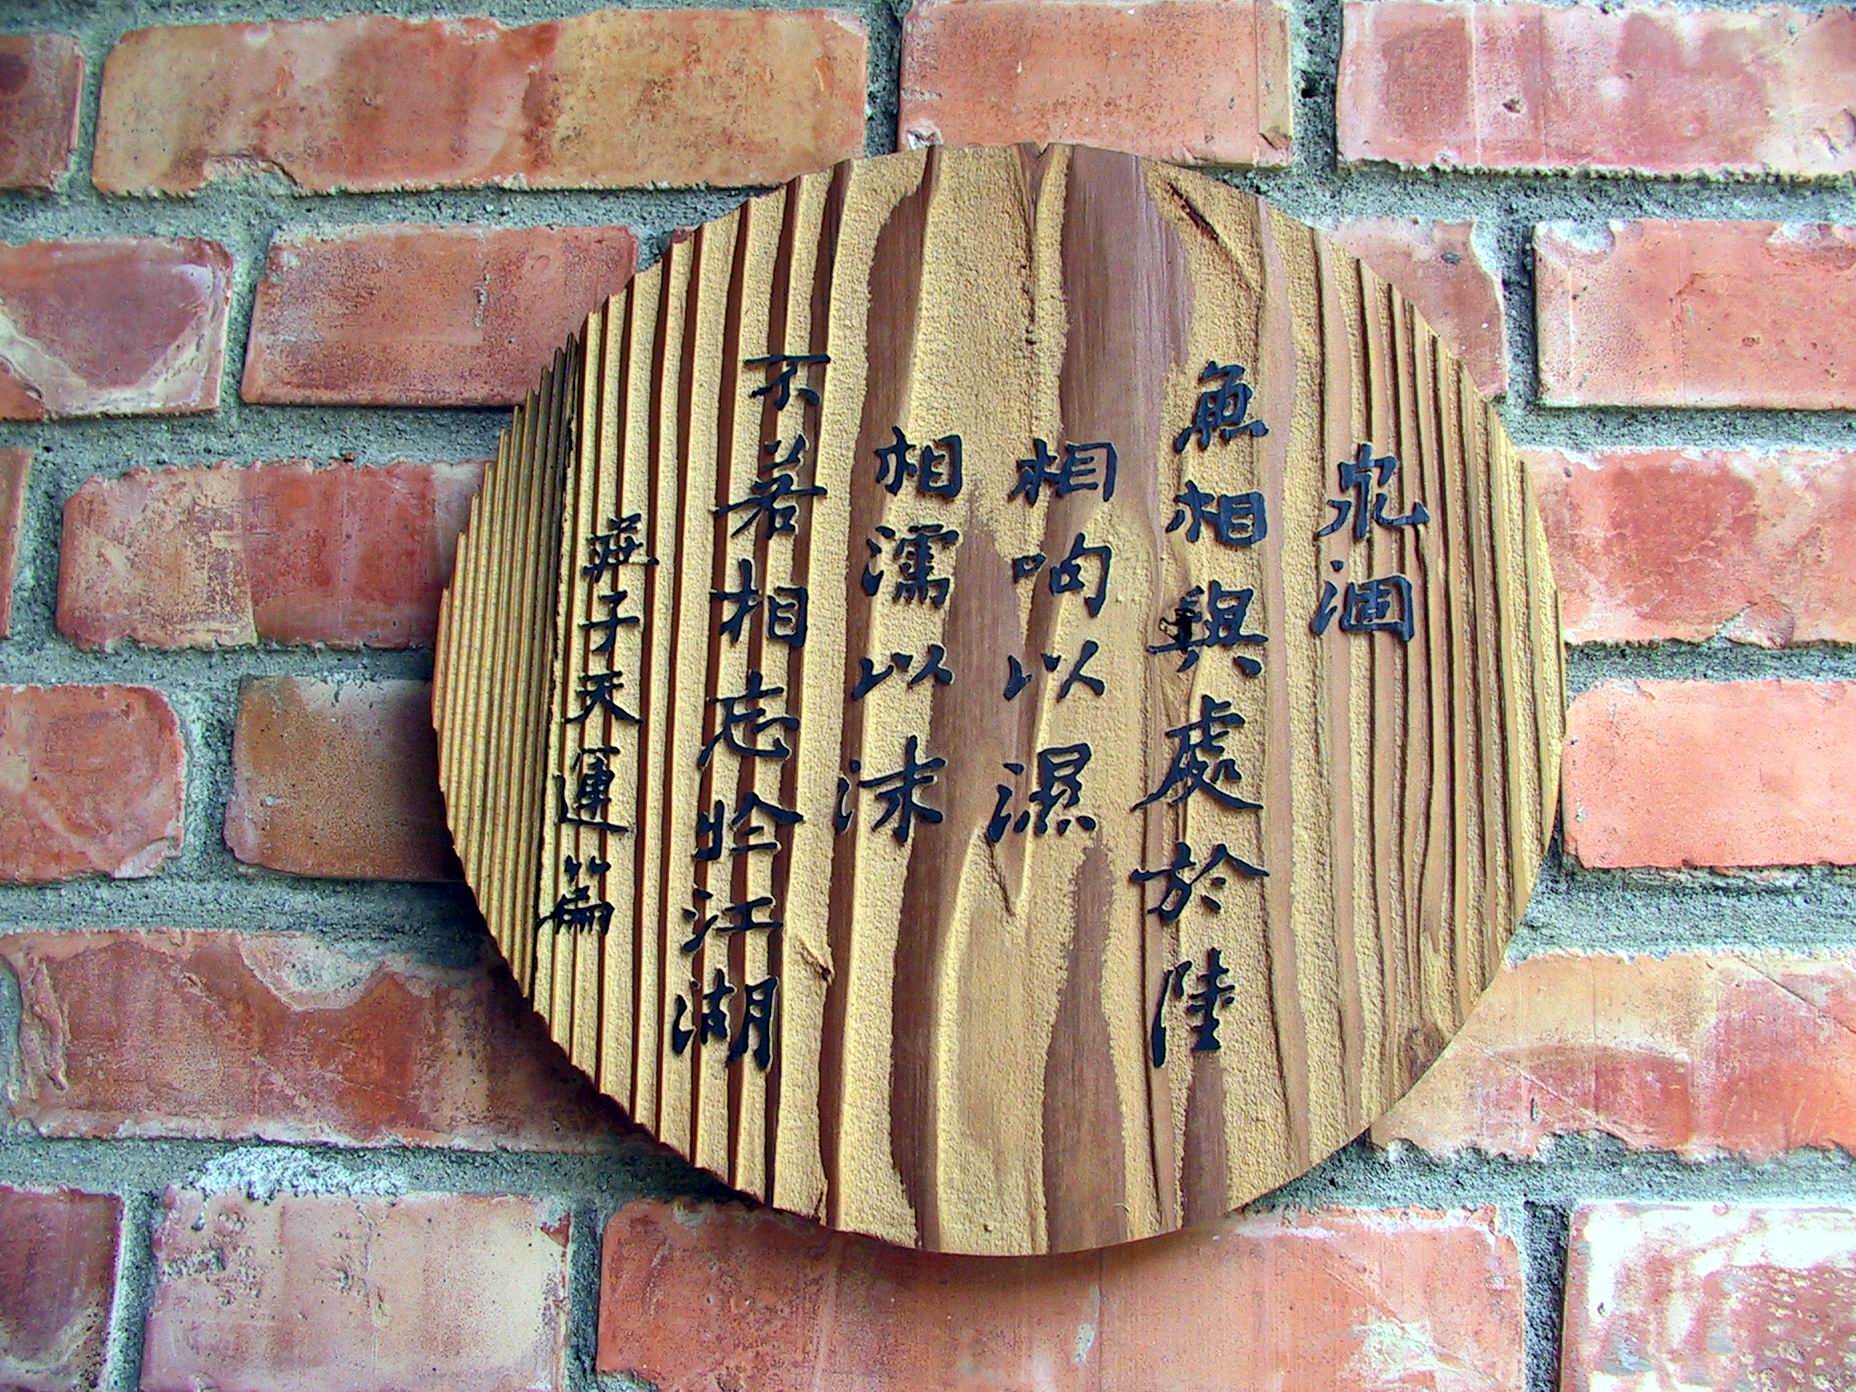 泉涸
魚相與處於陸
相呴以濕
相濡以沫
不若相忘於江湖
莊子天運篇